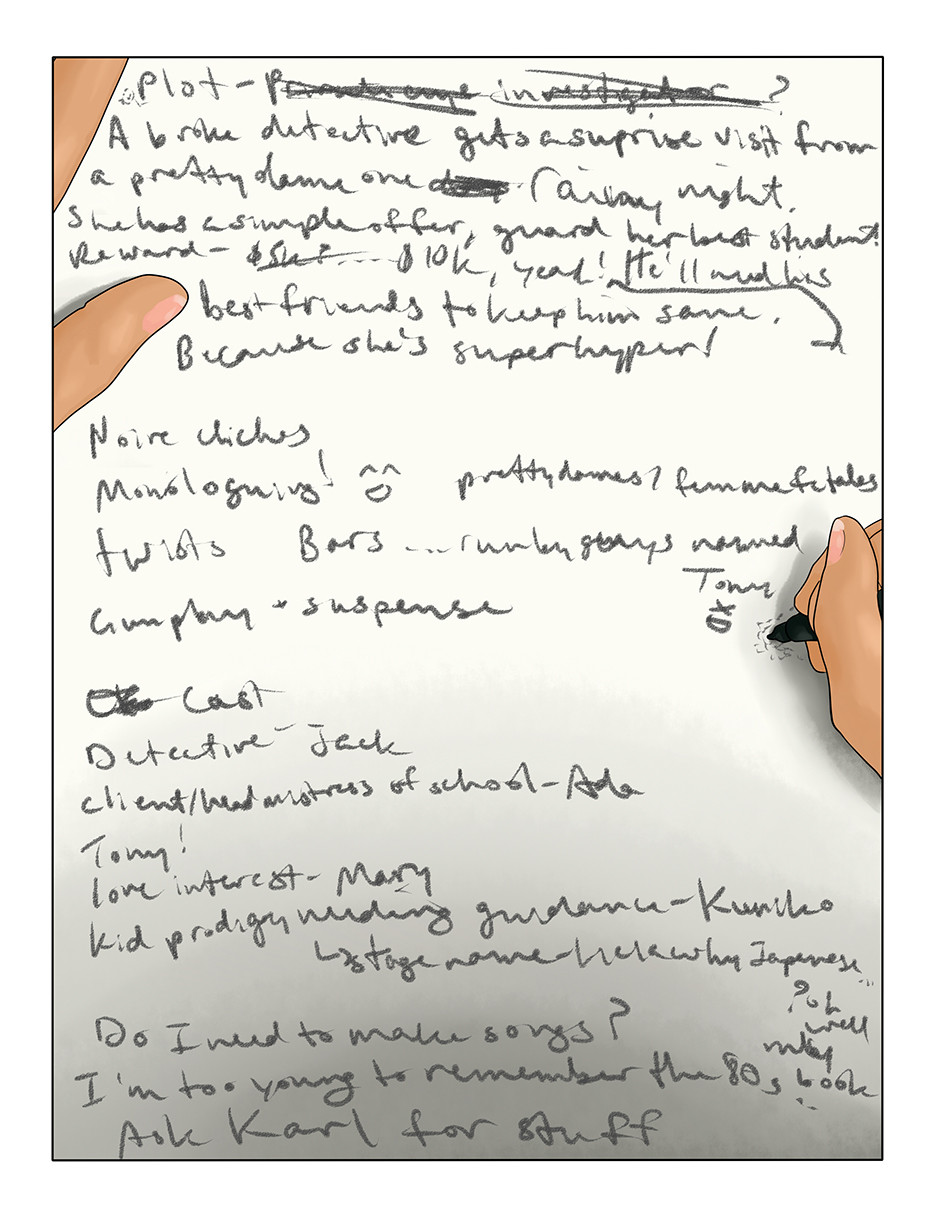 Plot - investigator ?
A broke detective gets a suprise visit from
a pretty dame one rainy night.
She has a simple offer, guard her best student!
Reward - $5k? .... $10k, yeah! He'll need his
best friends to keep him sane.
Because she's superhyper!
Noire cliches
Monologuing! pretty dames/femme fatales
twists Bars ... guys named
Tony
XD
Gunplay + suspense
Cast
Detective - Jack
client/headmistress of school - Ada
Tony!
love interest - Mary
kid prodigy needing guidance - Kumiko
stage name - why Japenese...
? oh
well
my
book
Do I need to make songs?
I'm too young to remember the 80s
...
Ask Karl for stuff